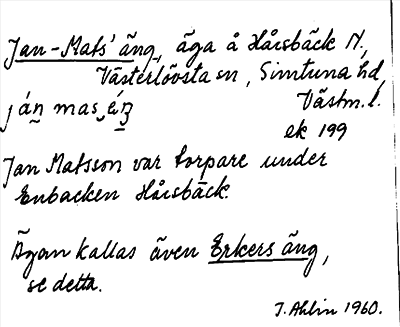 Jan-Mats' äng, äga å Hårsbäck N.,
Västerlövsta sn, Simtuna hd,
ján mas‿éŋ Västm. l.
ek 199
Jan Matsson var torpare under
Enbacken Hårsbäck.
Ägan kallas även Erkers äng,
se detta.
J. Ahlin 1960.